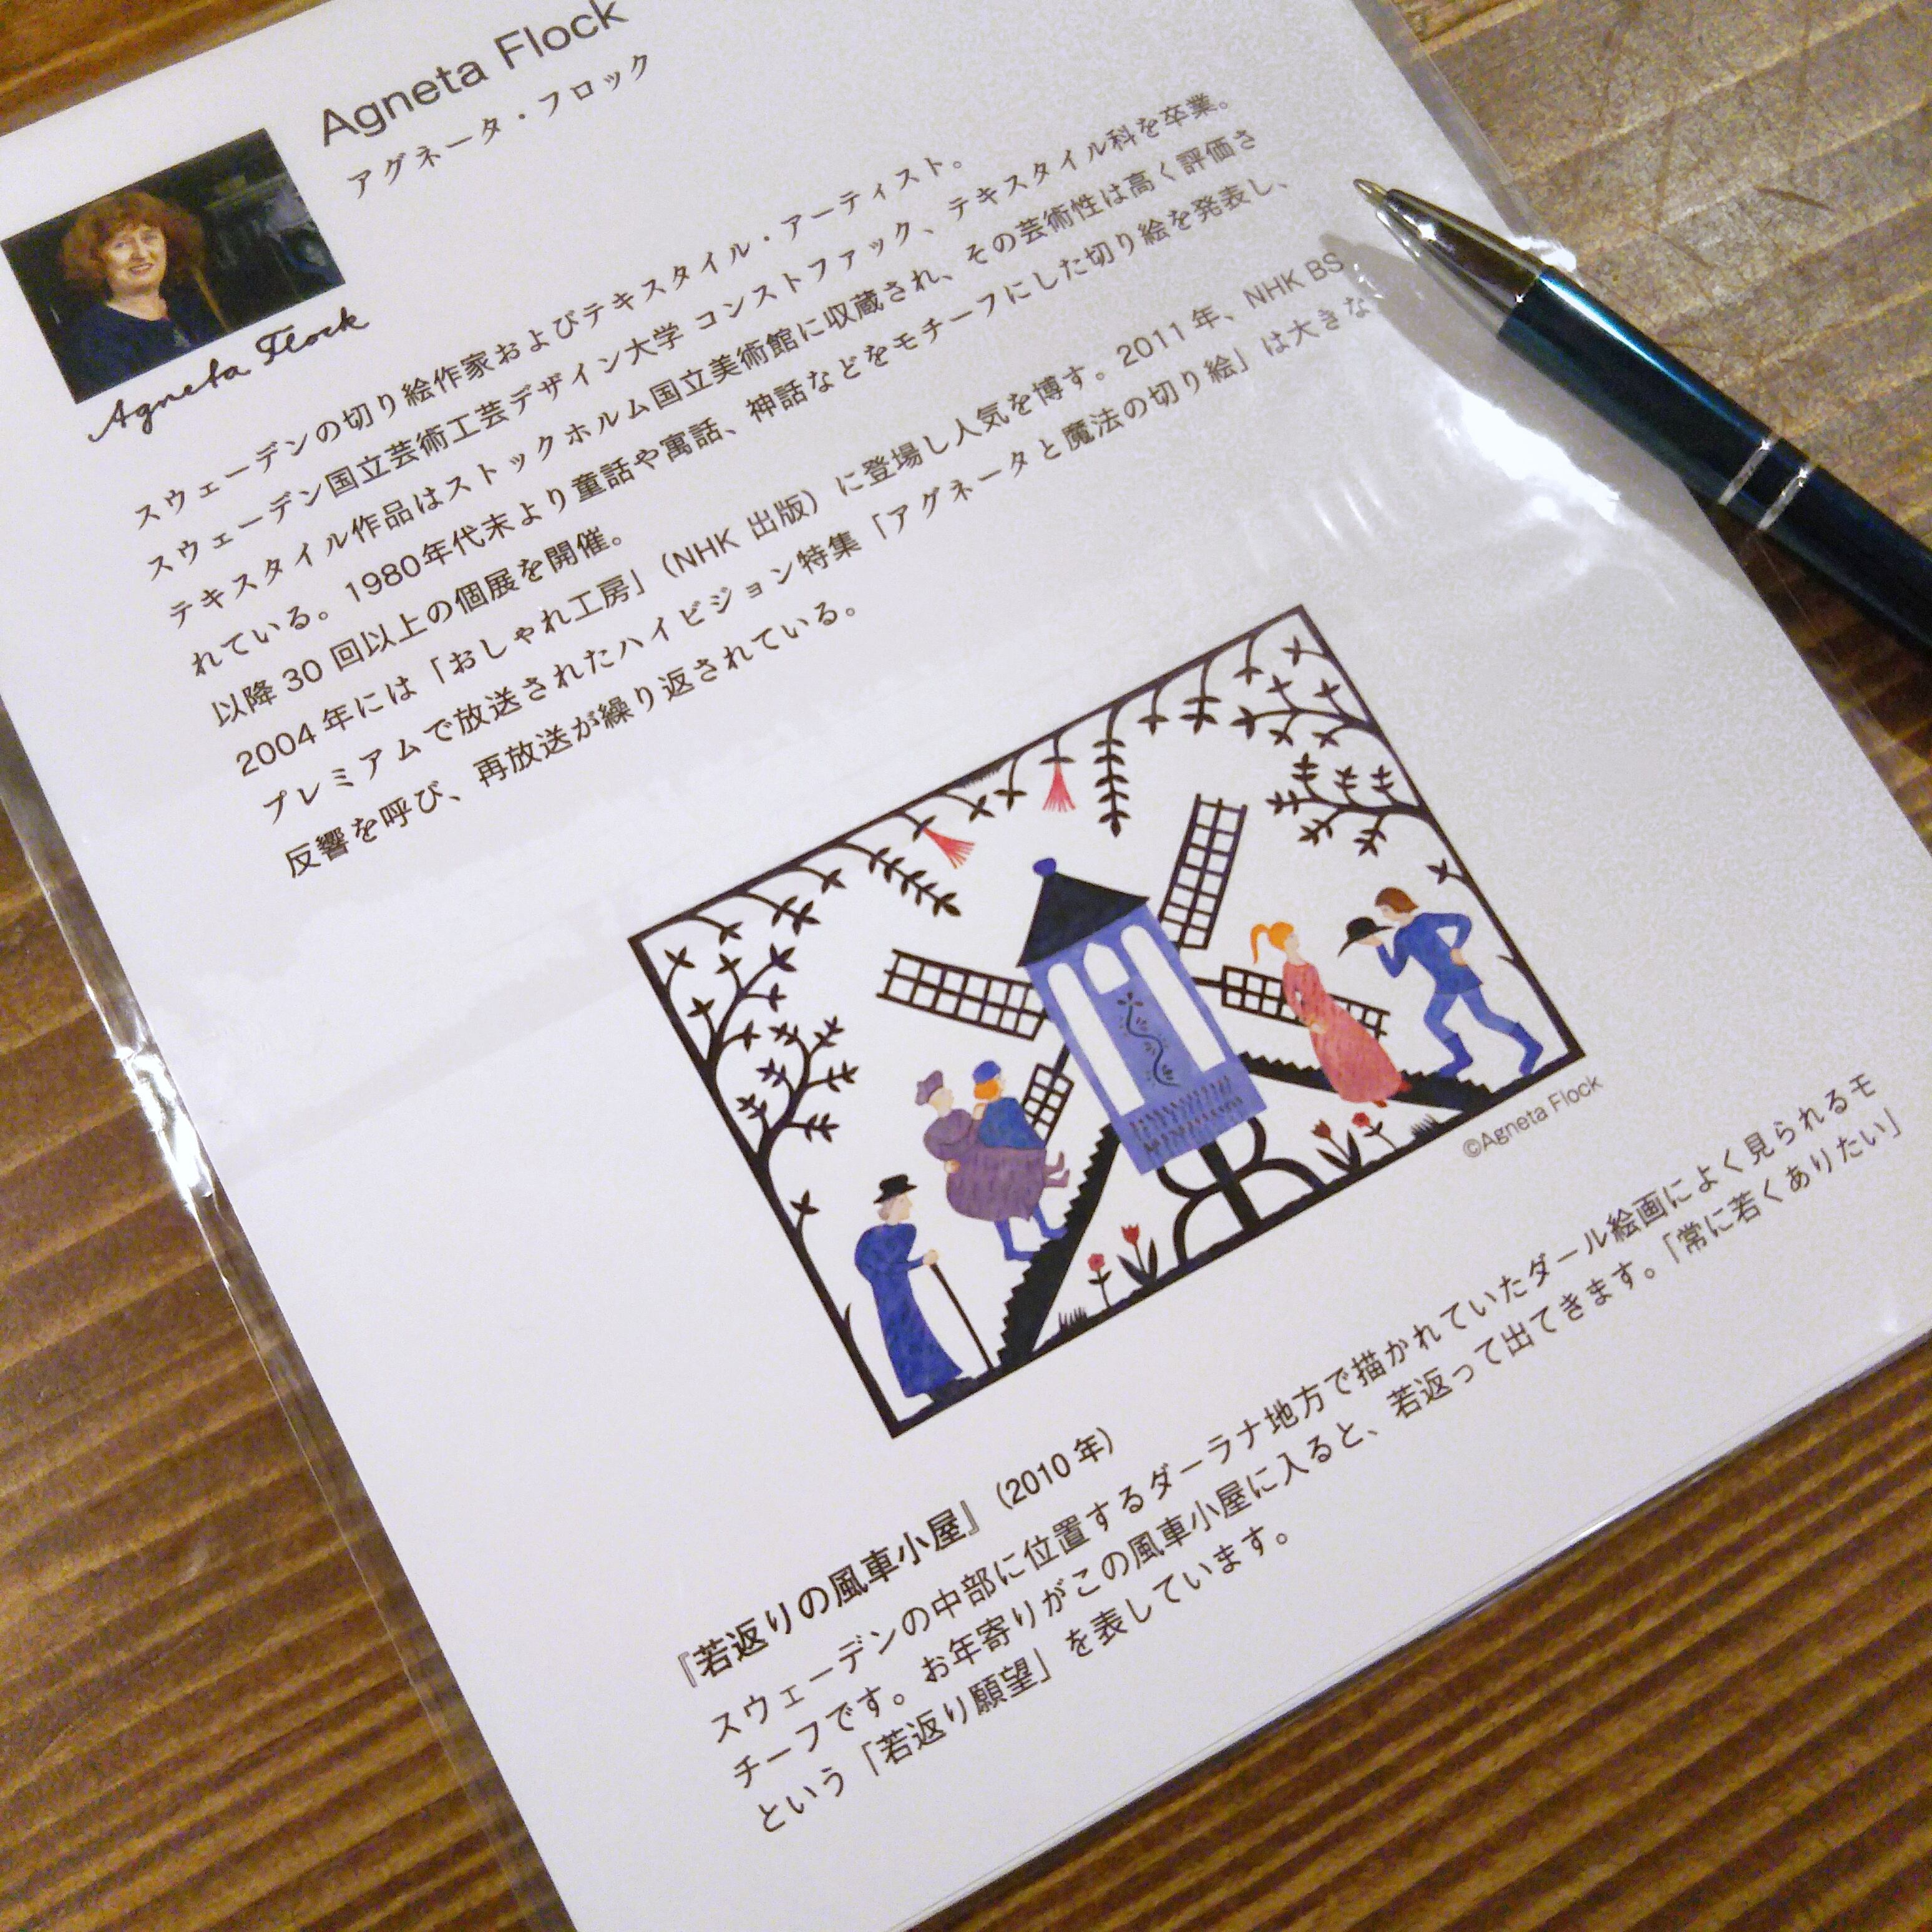 Agneta Flock
アグネータ・フロック
Agneta Flock
スウェーデンの切り絵作家およびテキスタイル・アーティスト。
スウェーデン国立芸術工芸デザイン大学 コンストファック、テキスタイル科を卒業。
テキスタイル作品はストックホルム国立美術館に収蔵され、その芸術性は高く評価さ
れている。1980年代末より童話や寓話、神話などをモチーフにした切り絵を発表し、
以降 30 回以上の個展を開催。
2004 年には「おしゃれ工房」（NHK 出版）に登場し人気を博す。2011 年、NHK BS
プレミアムで放送されたハイビジョン特集「アグネータと魔法の切り絵」は大きな
反響を呼び、再放送が繰り返されている。
©Agneta Flock
『若返りの風車小屋』（2010 年）
スウェーデンの中部に位置するダーラナ地方で描かれていたダール絵画によく見られるモ
チーフです。お年寄りがこの風車小屋に入ると、若返って出てきます。「常に若くありたい」
という「若返り願望」を表しています。